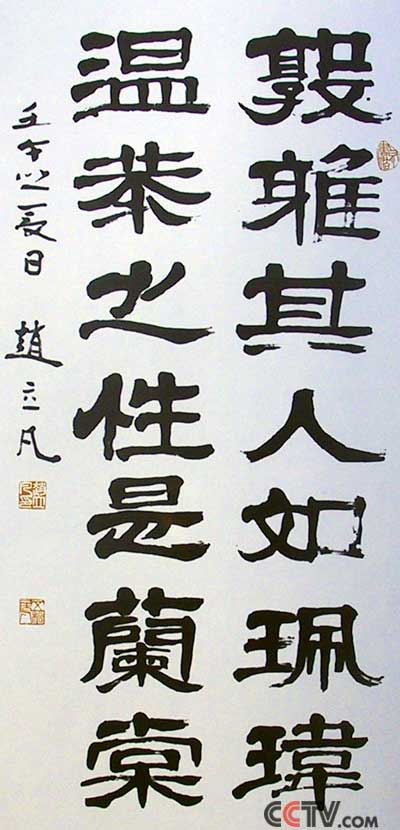 敦雅其人如珮瑋
温恭之性是蘭棠
壬午之夏日 趙立凡
CCTV.com